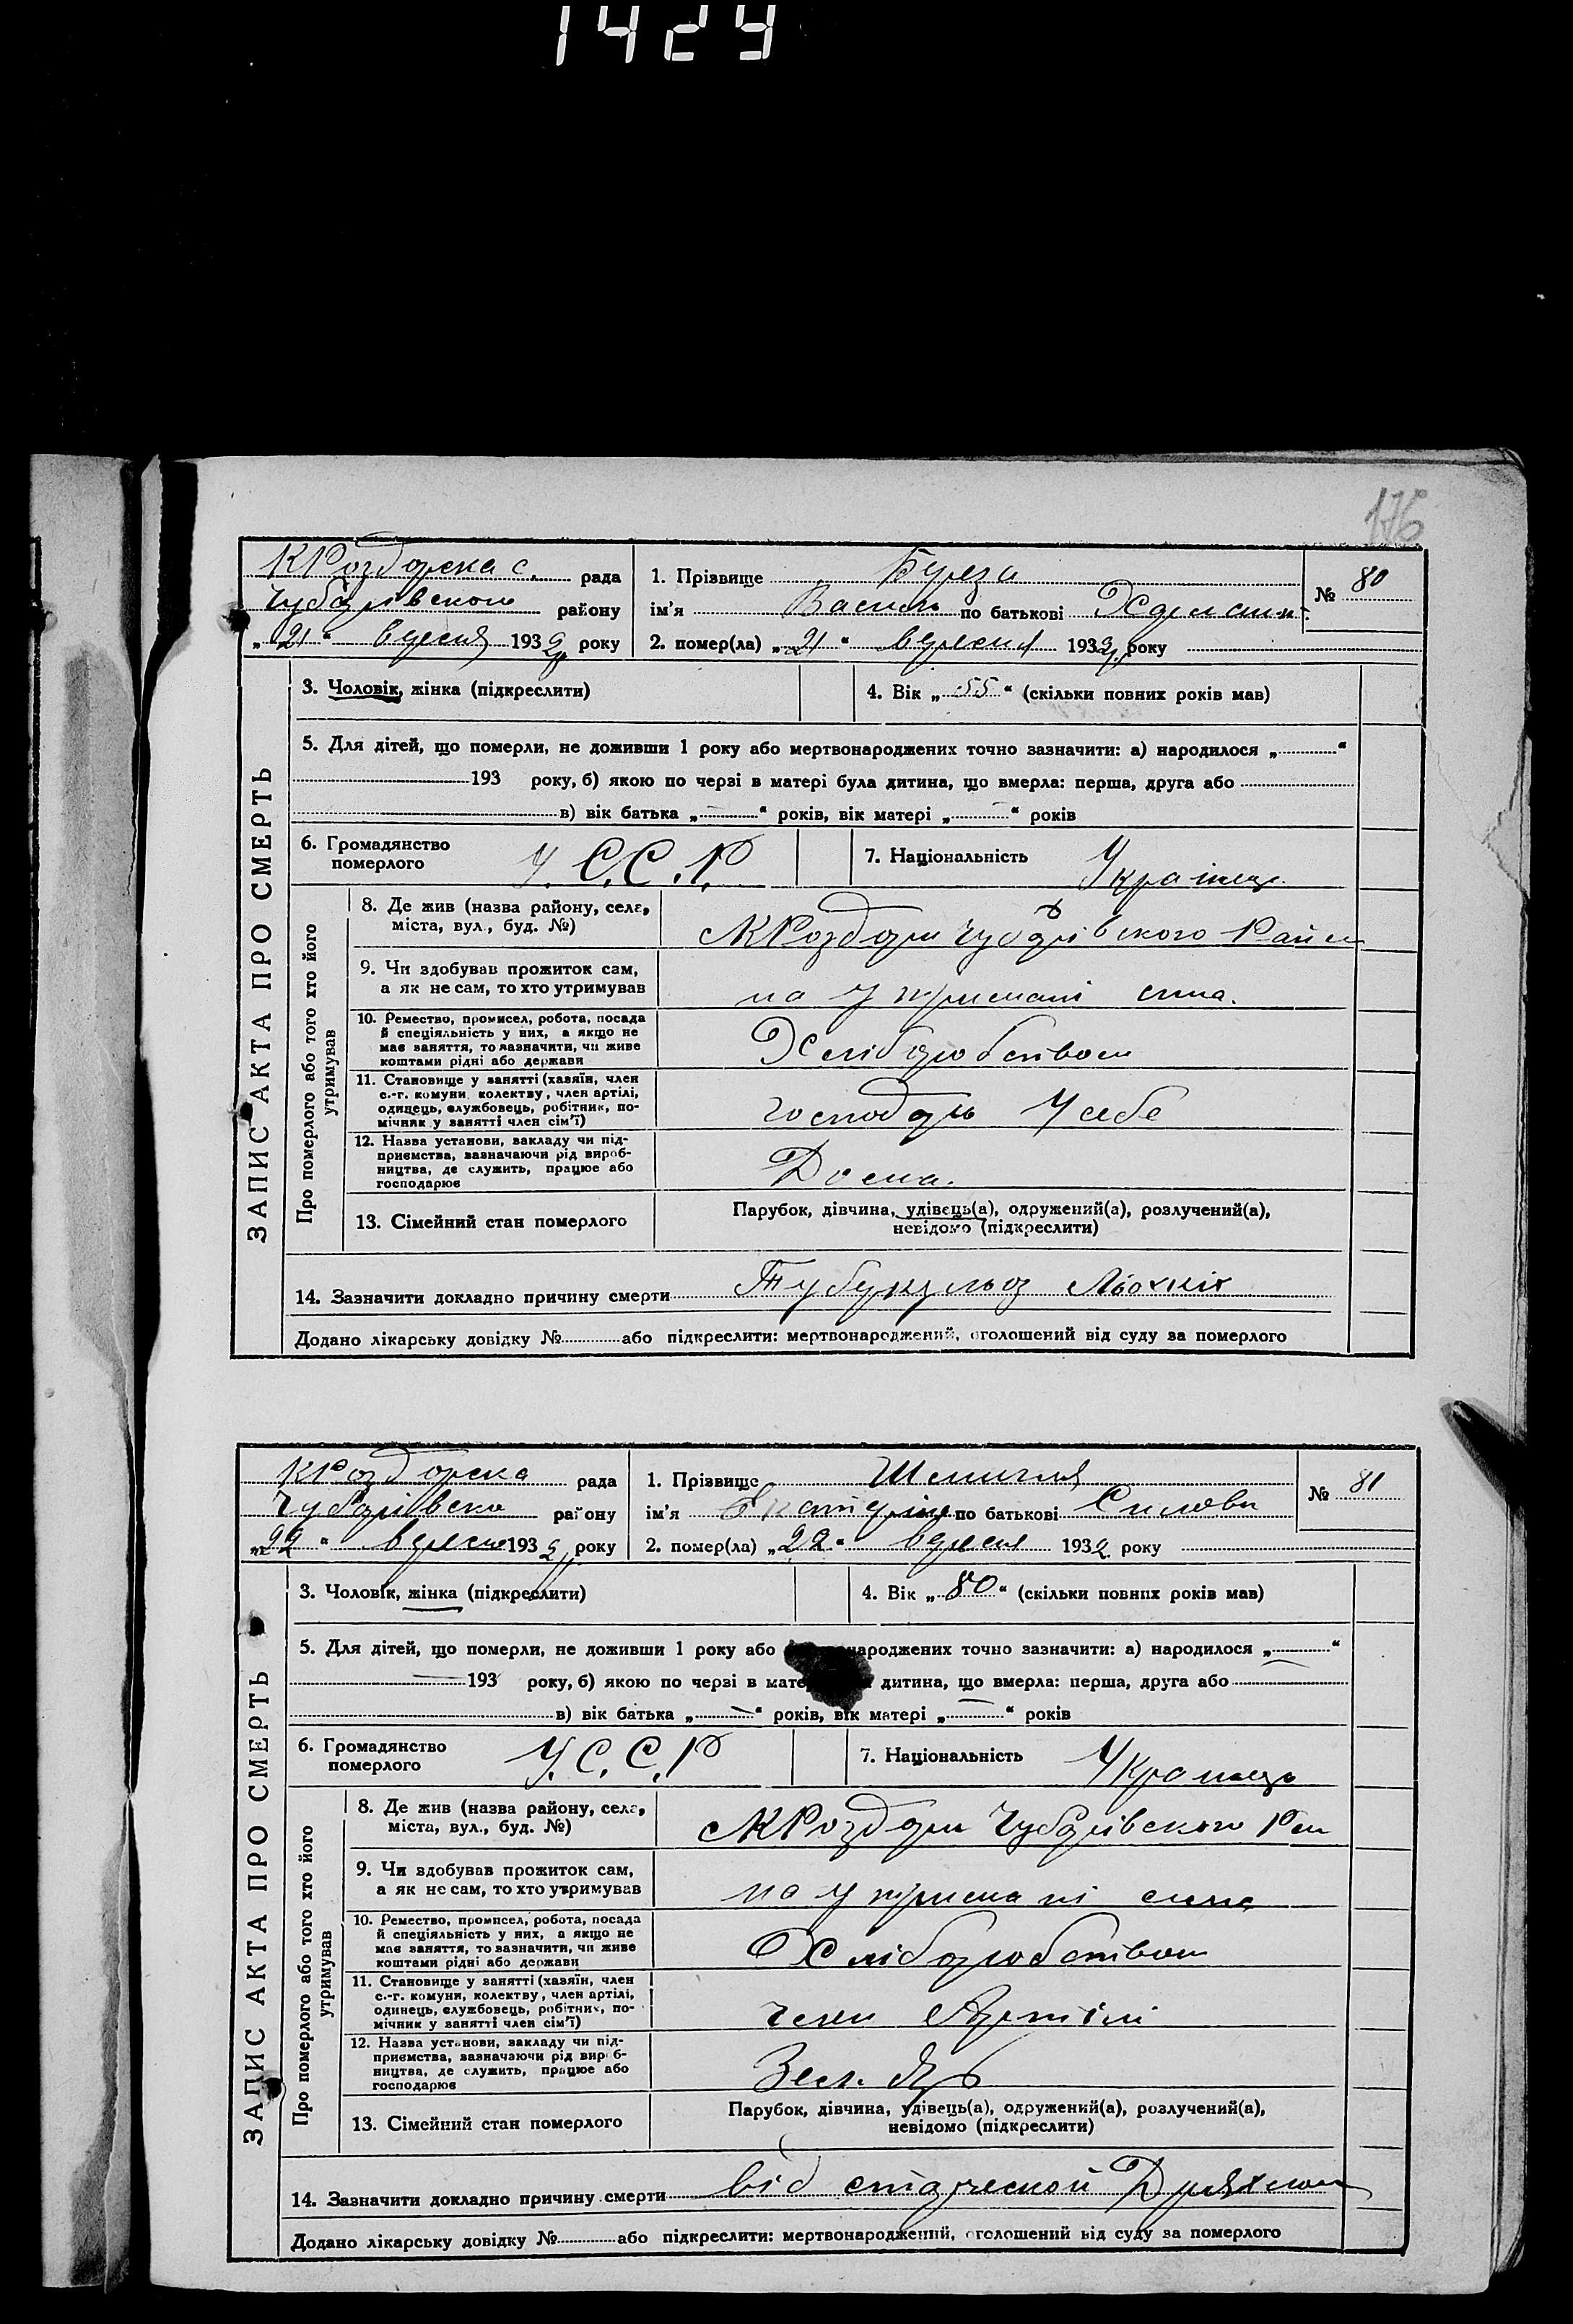 1424
176
КРоздорска с. рада
Чубарівского району
„21“ вересня 1932 року
1. Прізвище Береза
ім’я Василь по батькові
2. помер(ла) „21“ вересня 1932 року
№ 80
ЗАПИС АКТА ПРО СМЕРТЬ
3. Чоловік, жінка (підкреслити)
4. Вік „55“ (скільки повних років мав)
5. Для дітей, що померли, не доживши 1 року або мертвонароджених точно зазначити: а) народилося „ “
193 року, б) якою по черзі в матері була дитина, що вмерла: перша, друга або
в) вік батька „ “ років, вік матері „ “ років
6. Громадянство
померлого
У.С.С.Р
7. Національність
Українец
Про померлого або того хто його
утримував
8. Де жив (назва району, села,
міста, вул., буд. №)
КРоздори Чубарівского Району
9. Чи здобував прожиток сам,
а як не сам, то хто утримував
на утримані сина.
10. Ремество, промисел, робота, посада
й спеціяльність у них, а якщо не
має заняття, то зазначити, чи живе
коштами рідні або держави
Хліборобством
11. Становище у занятті (хазяїн, член
с.-г. комуни, колектву, член артілі,
одинець, службовець, робітник, по-
мічник у занятті член сім’ї)
господарь у себе
12. Назва установи, закладу чи під-
приємства, зазначаючи рід вироб-
ництва, де служить, працює або
господарює
Дома.
13. Сімейний стан померлого
Парубок, дівчина, удівець(а), одружений(а), розлучений(а),
невідомо (підкреслити)
14. Зазначити докладно причину смерти Туберкульоз Льохкіх
Додано лікарську довідку № або підкреслити: мертвонароджений, оголошений від суду за померлого
КРоздорска рада
Чубарівско району
„22“ вересня 1932 року
1. Прізвище
ім’я Екатерина по батькові Силовна
2. помер(ла) „22“ вересня 1932 року
№ 81
ЗАПИС АКТА ПРО СМЕРТЬ
3. Чоловік, жінка (підкреслити)
4. Вік „80“ (скільки повних років мав)
5. Для дітей, що померли, не доживши 1 року або народжених точно зазначити: а) народилося „ “
193 року, б) якою по черзі в мате дитина, що вмерла: перша, друга або
в) вік батька „ “ років, вік матері „ “ років
6. Громадянство
померлого
У.С.С.Р
7. Національність
Українець
Про померлого або того хто його
утримував
8. Де жив (назва району, села,
міста, вул., буд. №)
КРоздори Чубарівского Рай
9. Чи здобував прожиток сам,
а як не сам, то хто утримував
на утримані сина
10. Ремество, промисел, робота, посада
й спеціяльність у них, а якщо не
має заняття, то зазначити, чи живе
коштами рідні або держави
Хліборобством
11. Становище у занятті (хазяїн, член
с.-г. комуни, колектву, член артілі,
одинець, службовець, робітник, по-
мічник у занятті член сім’ї)
член Артілі
12. Назва установи, закладу чи під-
приємства, зазначаючи рід вироб-
ництва, де служить, працює або
господарює
13. Сімейний стан померлого
Парубок, дівчина, удівець(а), одружений(а), розлучений(а),
невідомо (підкреслити)
14. Зазначити докладно причину смерти від старческой Дряхлости
Додано лікарську довідку № або підкреслити: мертвонароджений, оголошений від суду за померлого